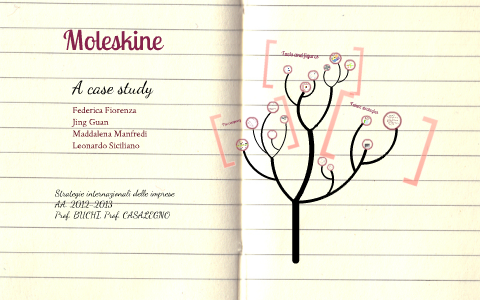 Moleskine
A case study
Federica Fiorenza
Jing Guan
Maddalena Manfredi
Leonardo Siciliano
Strategie internazionali delle imprese
AA. 2012-2013
Prof. BUCHI, Prof. CASALEGNO
Facts and figures